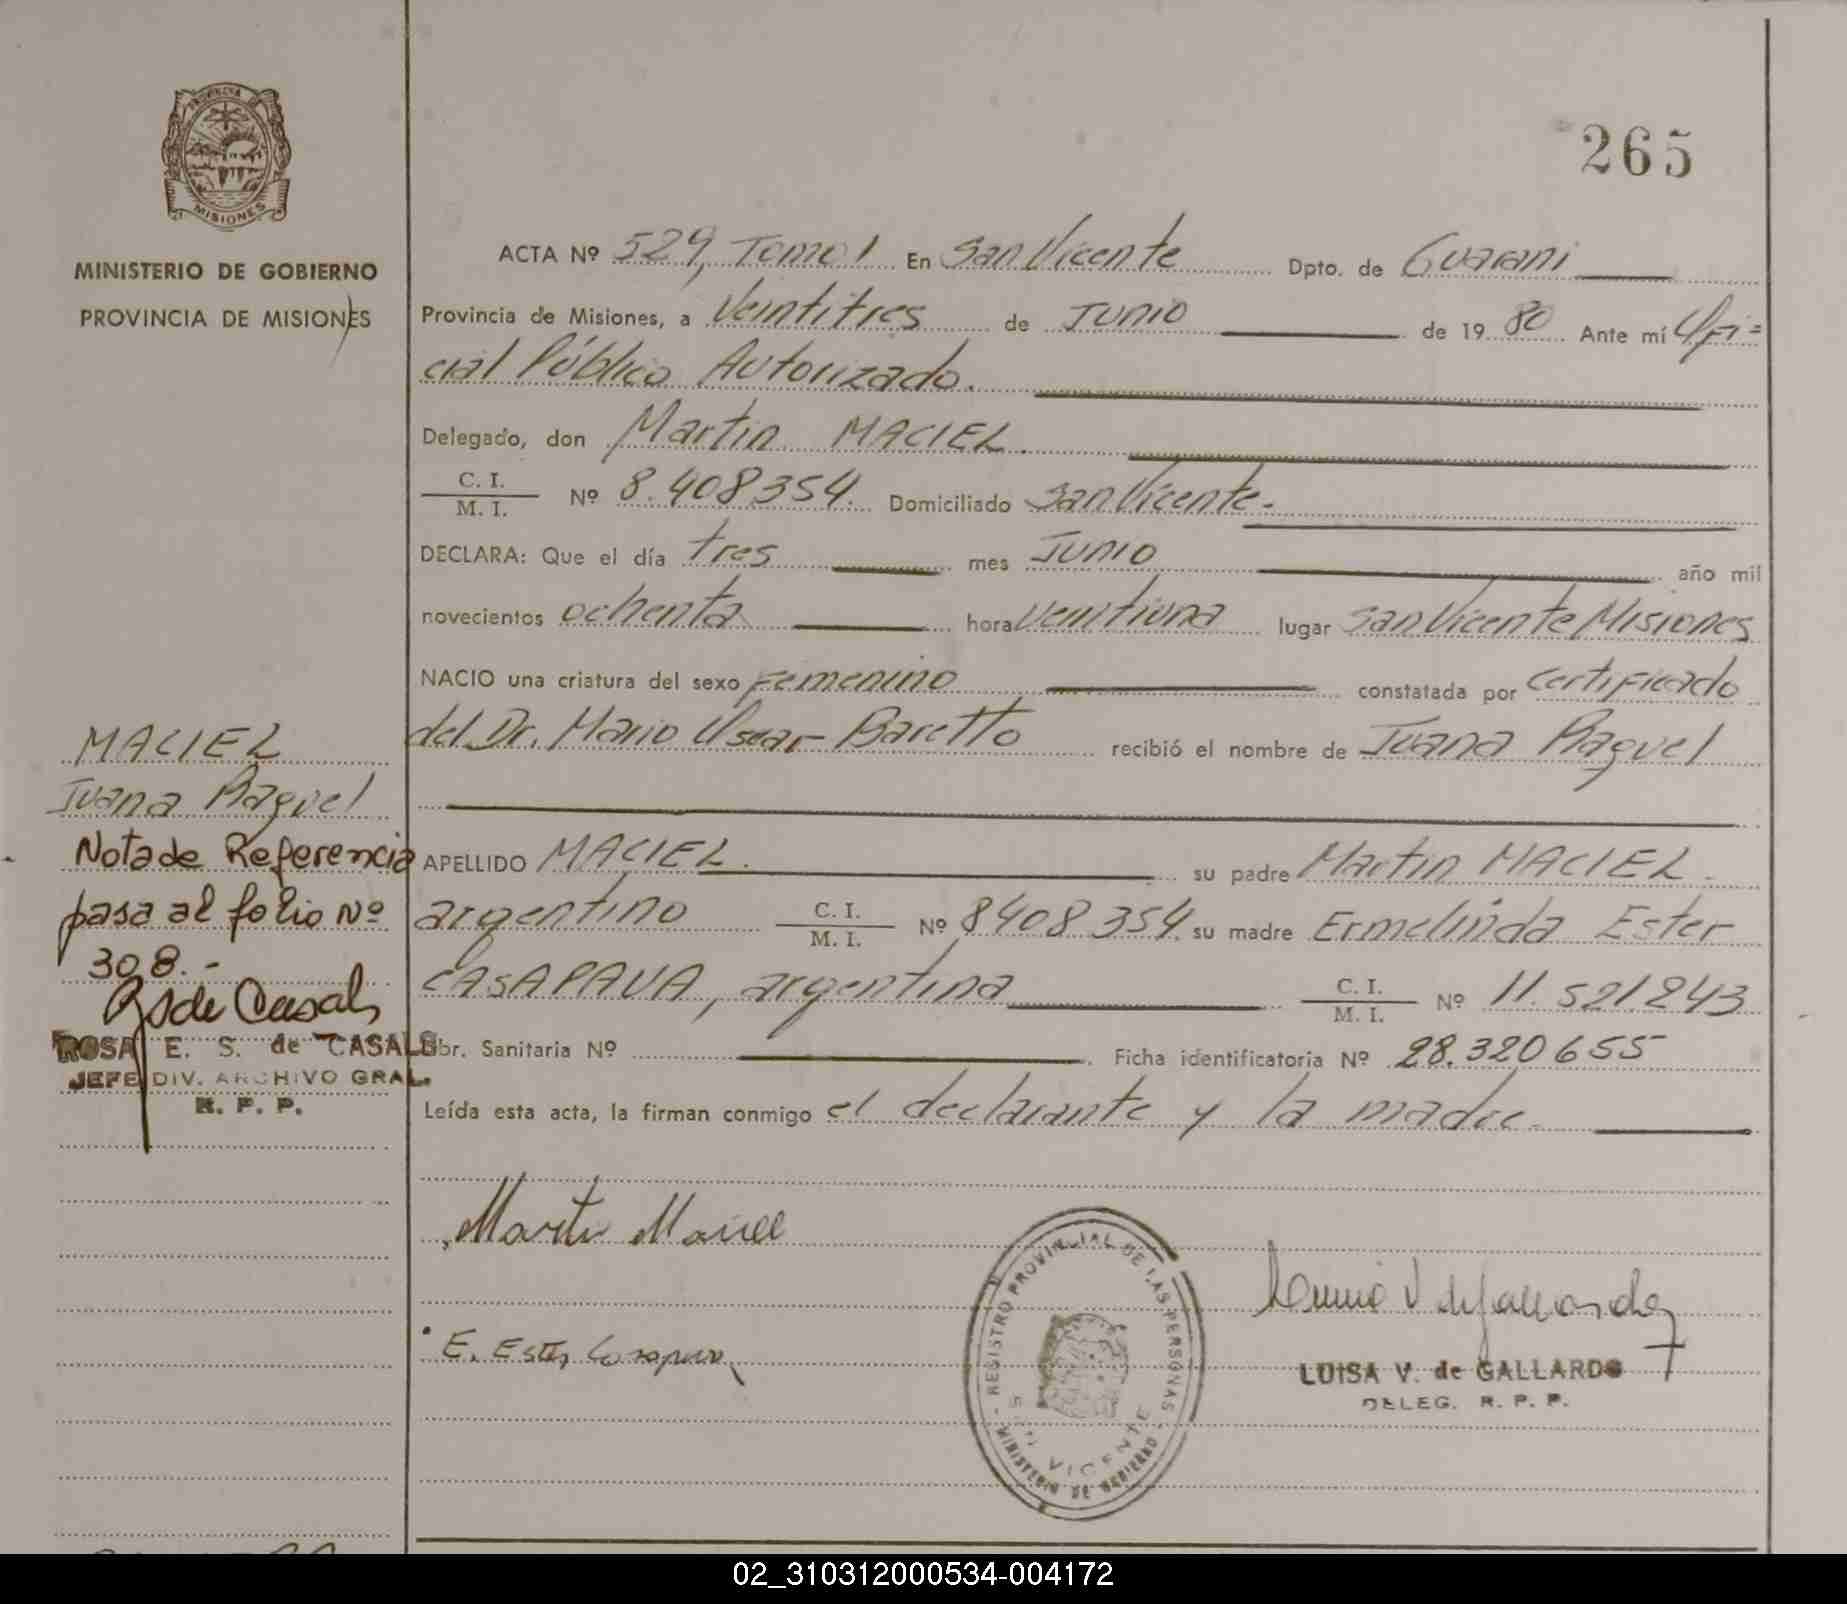 265
PROVINCIA DE
MISIONES
MINISTERIO DE GOBIERNO
PROVINCIA DE MISIONES
ACTA Nº 529, Tomo 1 En San Vicente Dpto. de Guarani
Provincia de Misiones, a Veintitres de Junio de 19 80 Ante mí Ofi=
cial Público Autorizado.
Delegado, don Martin MACIEL.
C. I.
M. I. Nº 8.408354. Domiciliado San Vicente.-
DECLARA: Que el día tres mes Junio año mil
novecientos ochenta hora veintiuna lugar San Vicente Misiones
NACIO una criatura del sexo Femenino constatada por certificado
del Dr. Mario Oscar Baretto recibió el nombre de Juana Raquel
MACIEL
Juana Raquel
Nota de Referencia
pasa al folio Nº
308.-
Rsde Casals
ROSA E. S. de CASALS
JEFE DIV. ARCHIVO GRAL.
R. P. P.
APELLIDO MACIEL. su padre Martin MACIEL.
argentino C. I.
M. I. Nº 8408354. su madre Ermelinda Ester
CASAPAVA, argentina C. I.
M. I. Nº 11.521243
Libr. Sanitaria Nº Ficha identificatoria Nº 28.320655
Leída esta acta, la firman conmigo el declarante y la madre.
Martin Maciel
E. Ester
REGISTRO PROVINCIAL DE LAS PERSONAS
MINISTERIO DE GOBIERNO
SAN VICENTE
LUISA V. de GALLARDO
DELEG. R. P. P.
02_310312000534-004172